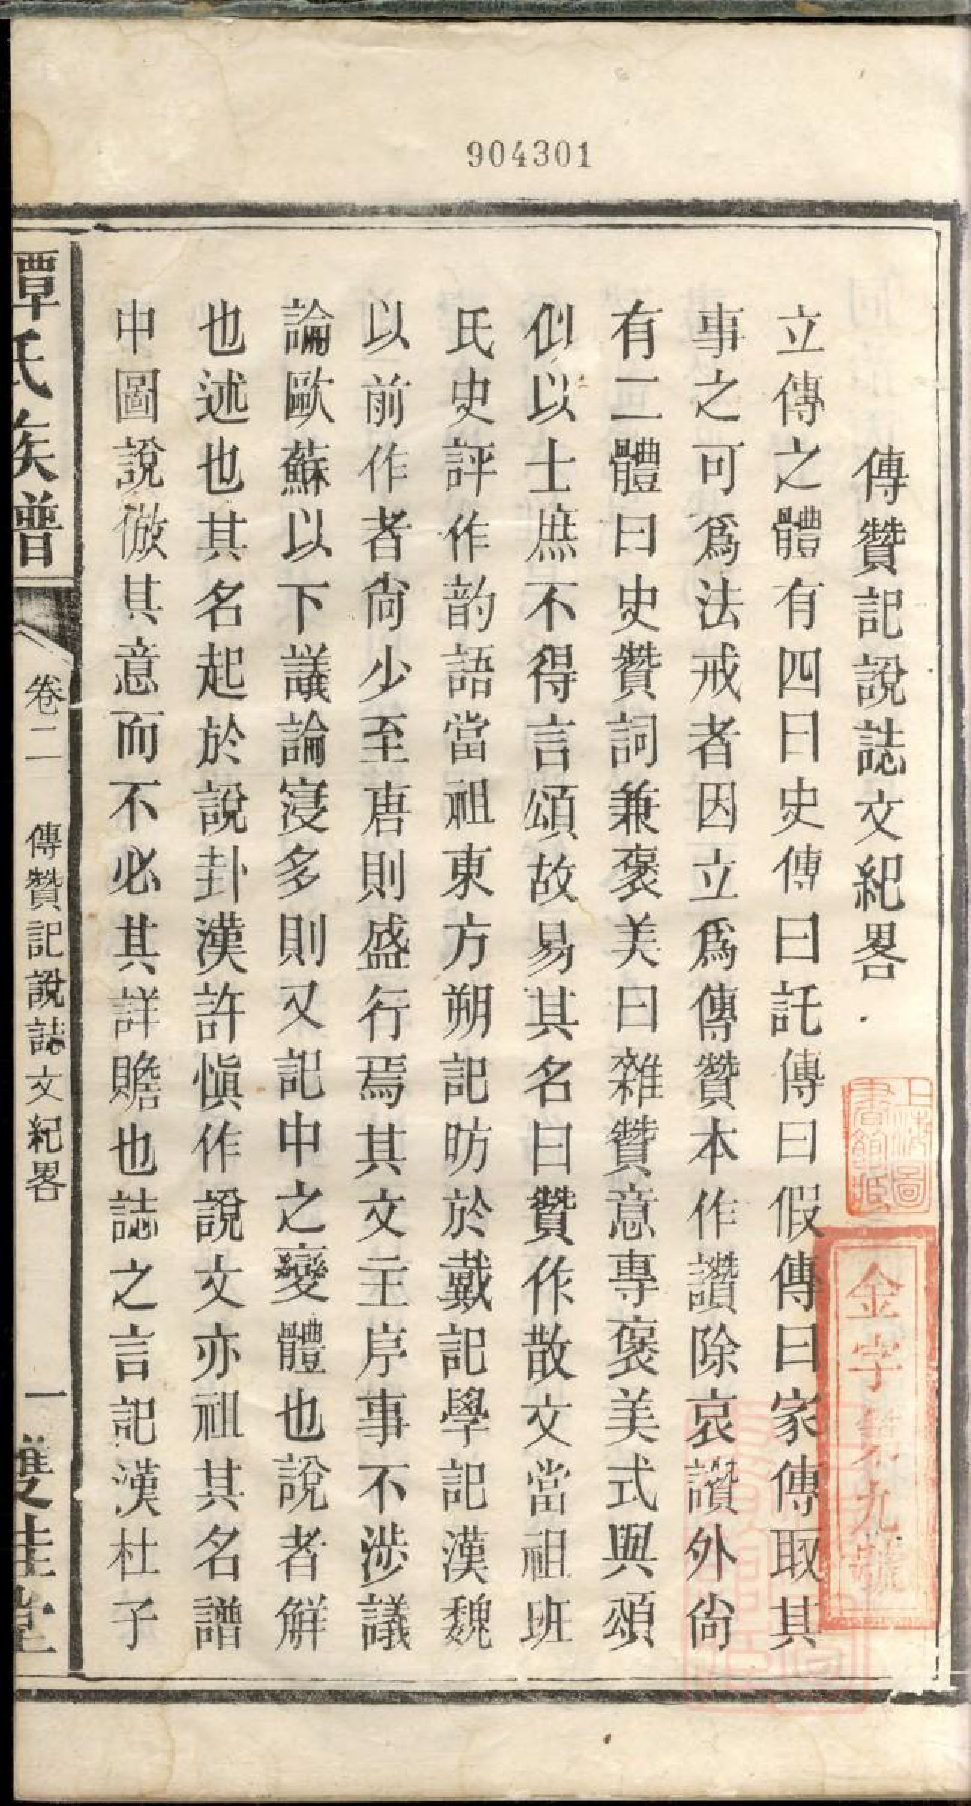 904301
傳贊記說誌文紀畧
立傳之體有四曰史傳曰託傳曰假傳曰家傳取其
事之可爲法戒者因立爲傳贊本作讚除哀讚外尙
有二體曰史贊詞兼褒美曰雜贊意專褒美式與頌
似以士庶不得言頌故易其名曰贊作散文當祖班
氏史評作韵語當祖東方朔記昉於戴記學記漢魏
以前作者尙少至唐則盛行焉其文主序事不涉議
論歐蘇以下議論寖多則又記中之變體也說者解
也述也其名起於說卦漢許愼作說文亦祖其名譜
中圖說倣其意而不必其詳贍也誌之言記漢杜子
譚氏族譜
卷二
傳贊記說誌文紀畧
一
雙桂堂
金字第九號